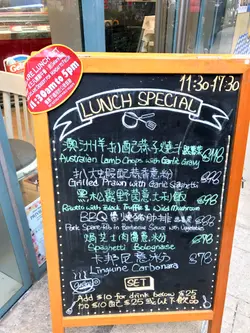 11:30-17:30
LUNCH SPECIAL
11:30am to 5pm
澳洲羊扒配蒜汁
Australian Lamb Chops with Garlic Gravy
扒大蝦配蒜香意粉 $98
Grilled Prawn with Garlic Spaghetti
黑松露野菌意大利飯 $98
Risotto with Black Truffle & Wild Mushroom
BBQ
Pork Spare Ribs in Barbecue Sauce with Vegetables
焗芝士肉醬意粉 $78
Spaghetti Bolognase
卡邦尼意粉 $78
Linguine Carbonara
SET
Add $10 for drink below $25
加$10配上$25或以下飲品